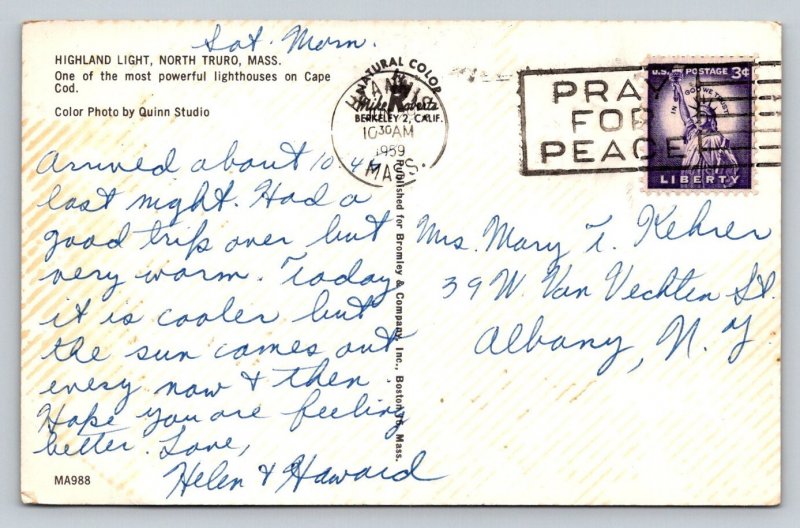 Sat. Morn.
HIGHLAND LIGHT, NORTH TRURO, MASS.
One of the most powerful lighthouses on Cape
Cod.
Color Photo by Quinn Studio
NATURAL COLOR
by
Mike Roberts
BERKELEY 2, CALIF.
10 30 AM
1959
MASS.
PRAY
FOR
PEACE
U.S. POSTAGE 3¢
IN GOD WE TRUST
LIBERTY
Arrived about 10.45
last night. Had a
good trip over but
very warm. Today
it is cooler but
the sun comes out
every now & then.
Hope you are feeling
better. Love,
Helen & Howard
Published for Bromley & Company, Inc., Boston 15, Mass.
Mrs. Mary T. Kehrer
39 W. Van Vechten St.
Albany, N.Y.
MA988